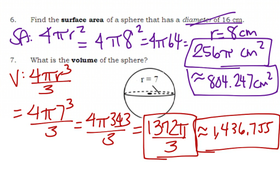 6. Find the surface area of a sphere that has a diameter of 16 cm.
SA: 4πr² = 4π8² = 4π64 =
r = 8cm
256π cm²
≈ 804.247cm²
7. What is the volume of the sphere?
V: 4πr³/3
r = 7
= 4π7³/3 = 4π343/3 = 1372π/3 ≈ 1,436.755